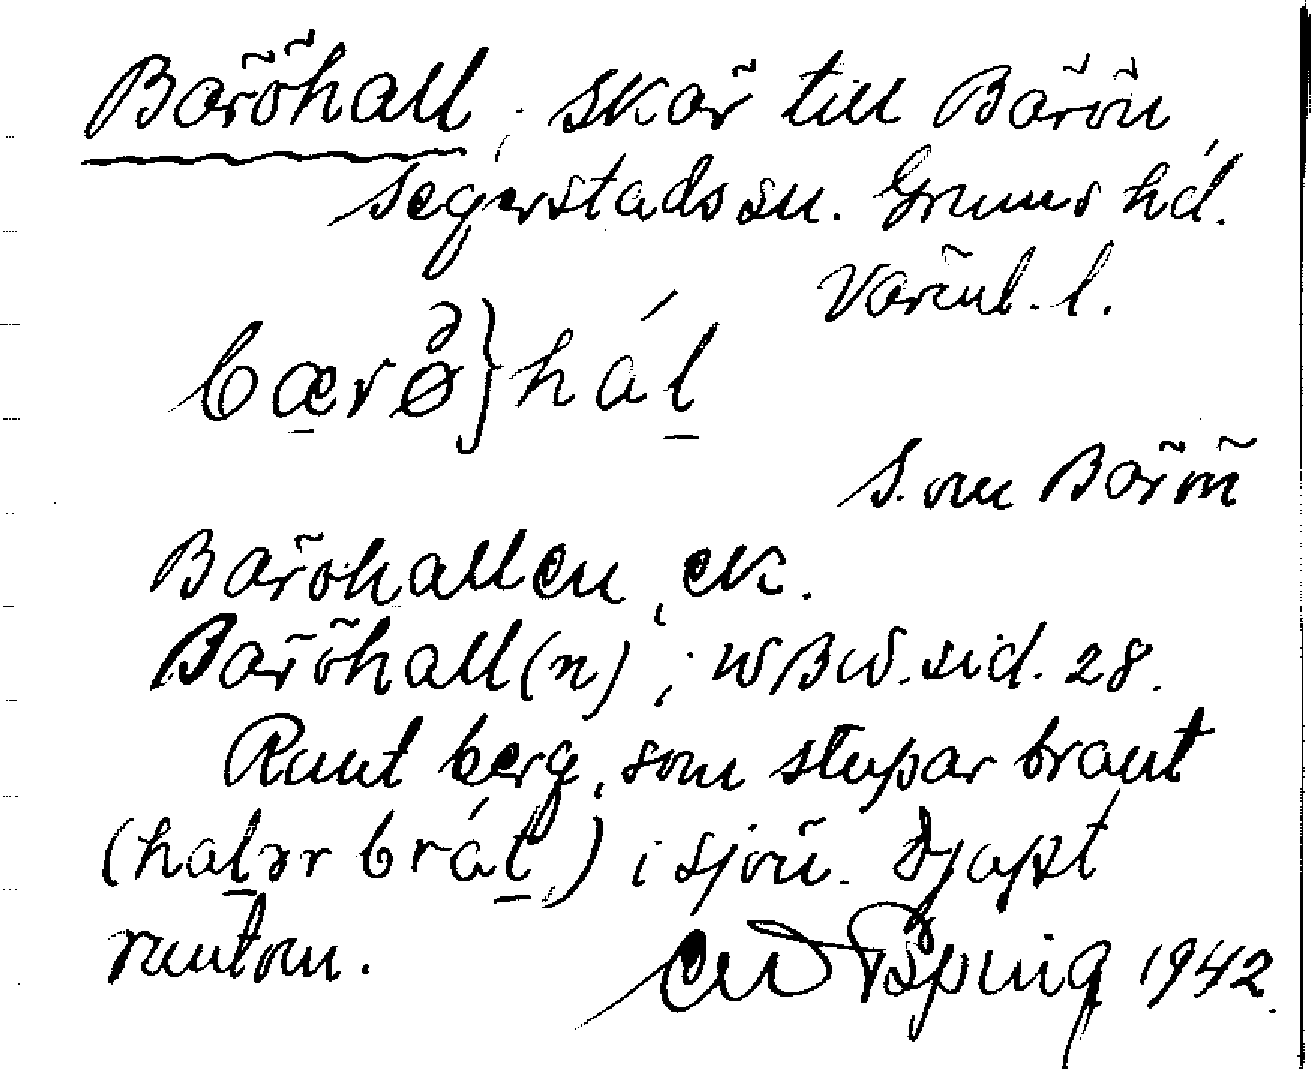 Bäröhäll, skär till Bärön,
Segerstads sn. Grums hd.
Värml. l.
bærø̀}hál
S. om Bärön
Bäröhallen, ek.
Bäröhäll(n); WBW. sid. 28.
Runt berg, som stupar brant
(halər brát,) i sjön. Djupt
runtom.
1942.